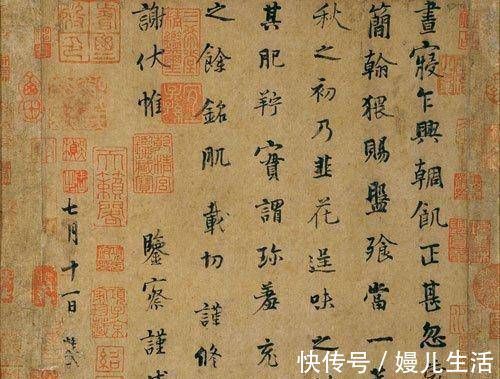 晝寢乍興輖飢正甚忽
簡翰猥賜盤飧當一
秋之初乃韭花逞味之
其肥羜實謂珍羞充
之餘銘肌載切謹修
謝伏惟 鑒察謹
七月十一日
天籟閣
快传号 / 嫚儿生活